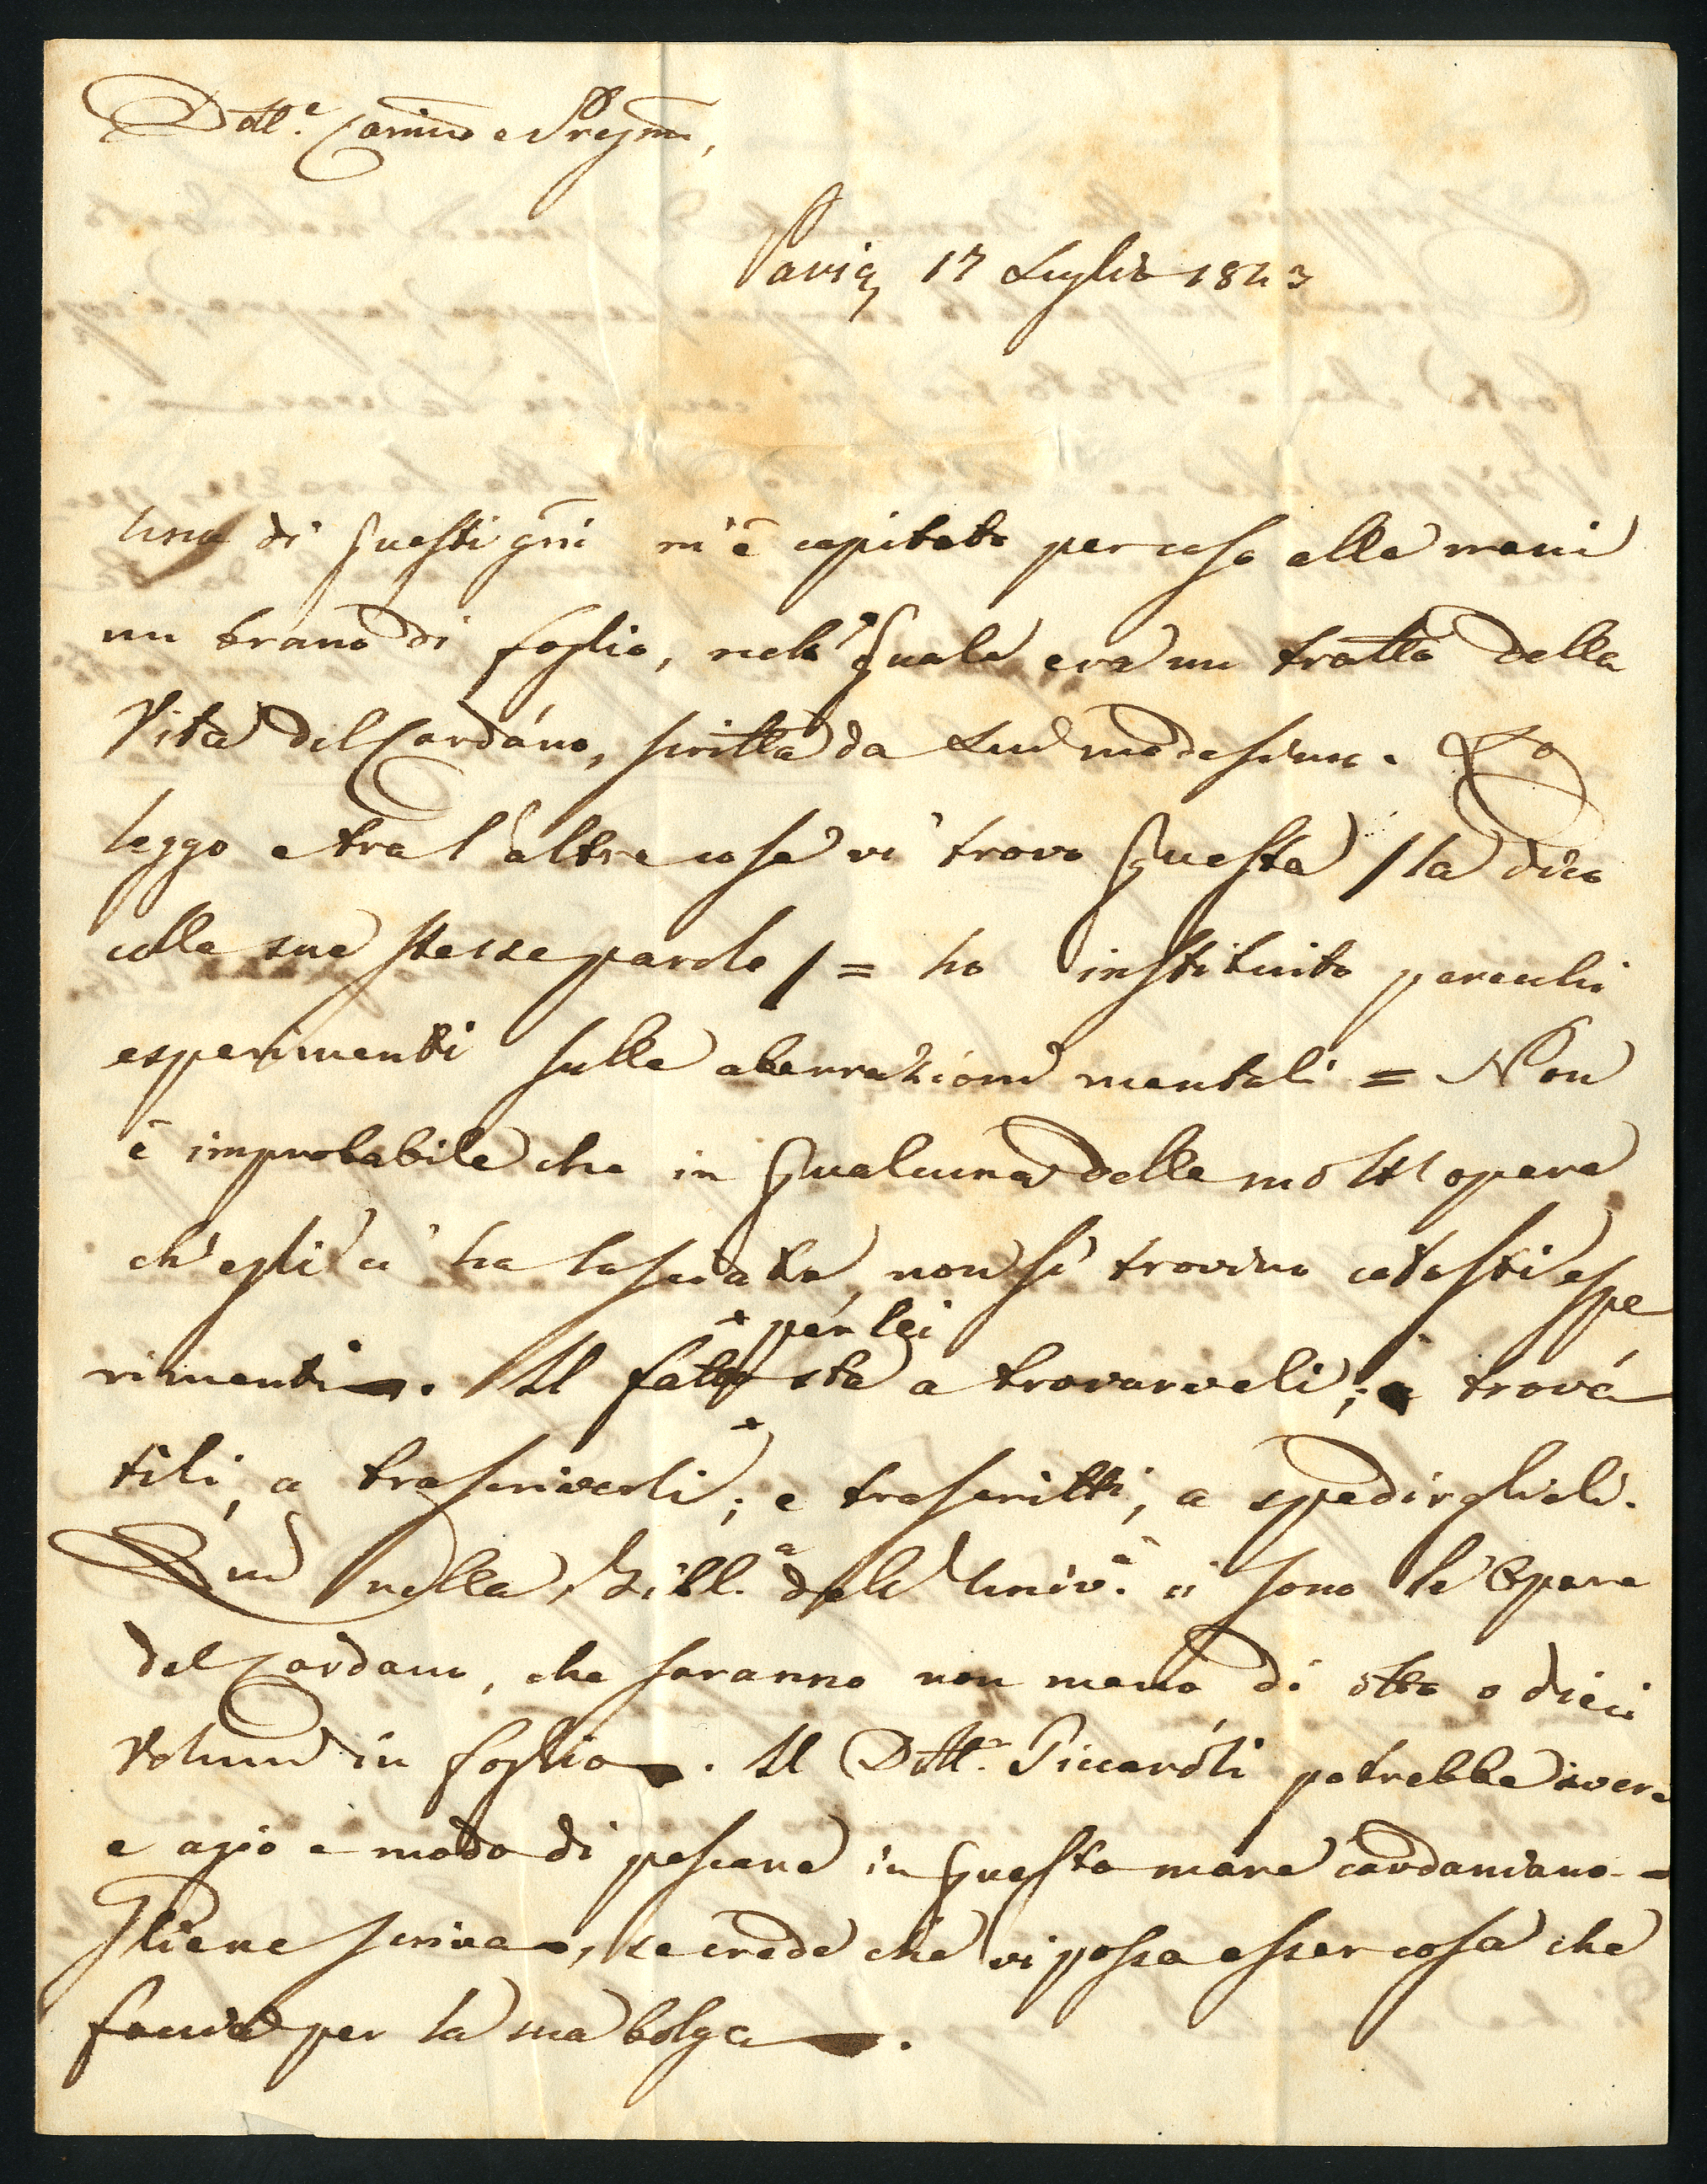 Dott.e Carimo e Pregmo,
Pavia, 17 Luglio 1843
Uno di questi gni m'è capitato per caso alle mani
un brano di foglio, nel quale era un tratto della
Vita del Cardáno, scritta da Lui medesimo. Lo
leggo e tra l'altre cose vi trovo questa / la dico
colle sue stesse parole / = ho instituito parecchi
esperimenti sulle aberrazioni mentali = Non
è improbabile che in qualcuna delle molte opere
ch'egli ci ha lasciate, non si trovino cotesti espe
per lei
rimenti. Il fatto sta a trovarveli; trová
tili, a trascriverli; e trascritti, a spedirglieli.
Quì nella Bibl.a dell' Univ.à ci sono le Opere
del Cardano, che saranno non meno di otto o dieci
volumi in foglio. Il Dott.r Piccaróli potrebbe avere
e agio e modo di pescare in questo mare cardaniano =
Gliene scriva, se crede che vi possa esser cosa che
faccia per la sua bolgia.